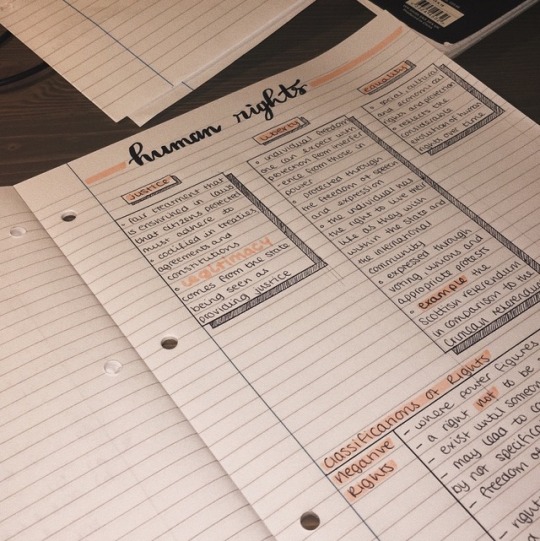 human rights
JUSTICE
• fair treatment that
is enshrined in laws
that citizens protected
must adhere to
• codified in treaties,
agreements and
constitutions
• legitimacy
comes from the state
being seen as
providing justice
LIBERTY
• individual freedom
one can expect with
protection from interfer
-ence from those in
power
• protected through
the freedom of speech
and expression
• the individual has
the right to live their
life as they wish
within the state and
the international
community
• expressed through
voting, unions and
appropriate protests
• example the
Scottish referendum
in comparison to the
Crimean referendum
EQUALITY
• social, cultural
and economical
rights and protection
• requires the
considerable
evolution of human
rights over time
classifications of Rights
negative
Rights
- where power figures
- a right not to be
- exist until someone
- may lead to
by not specific
- freedom of
- right